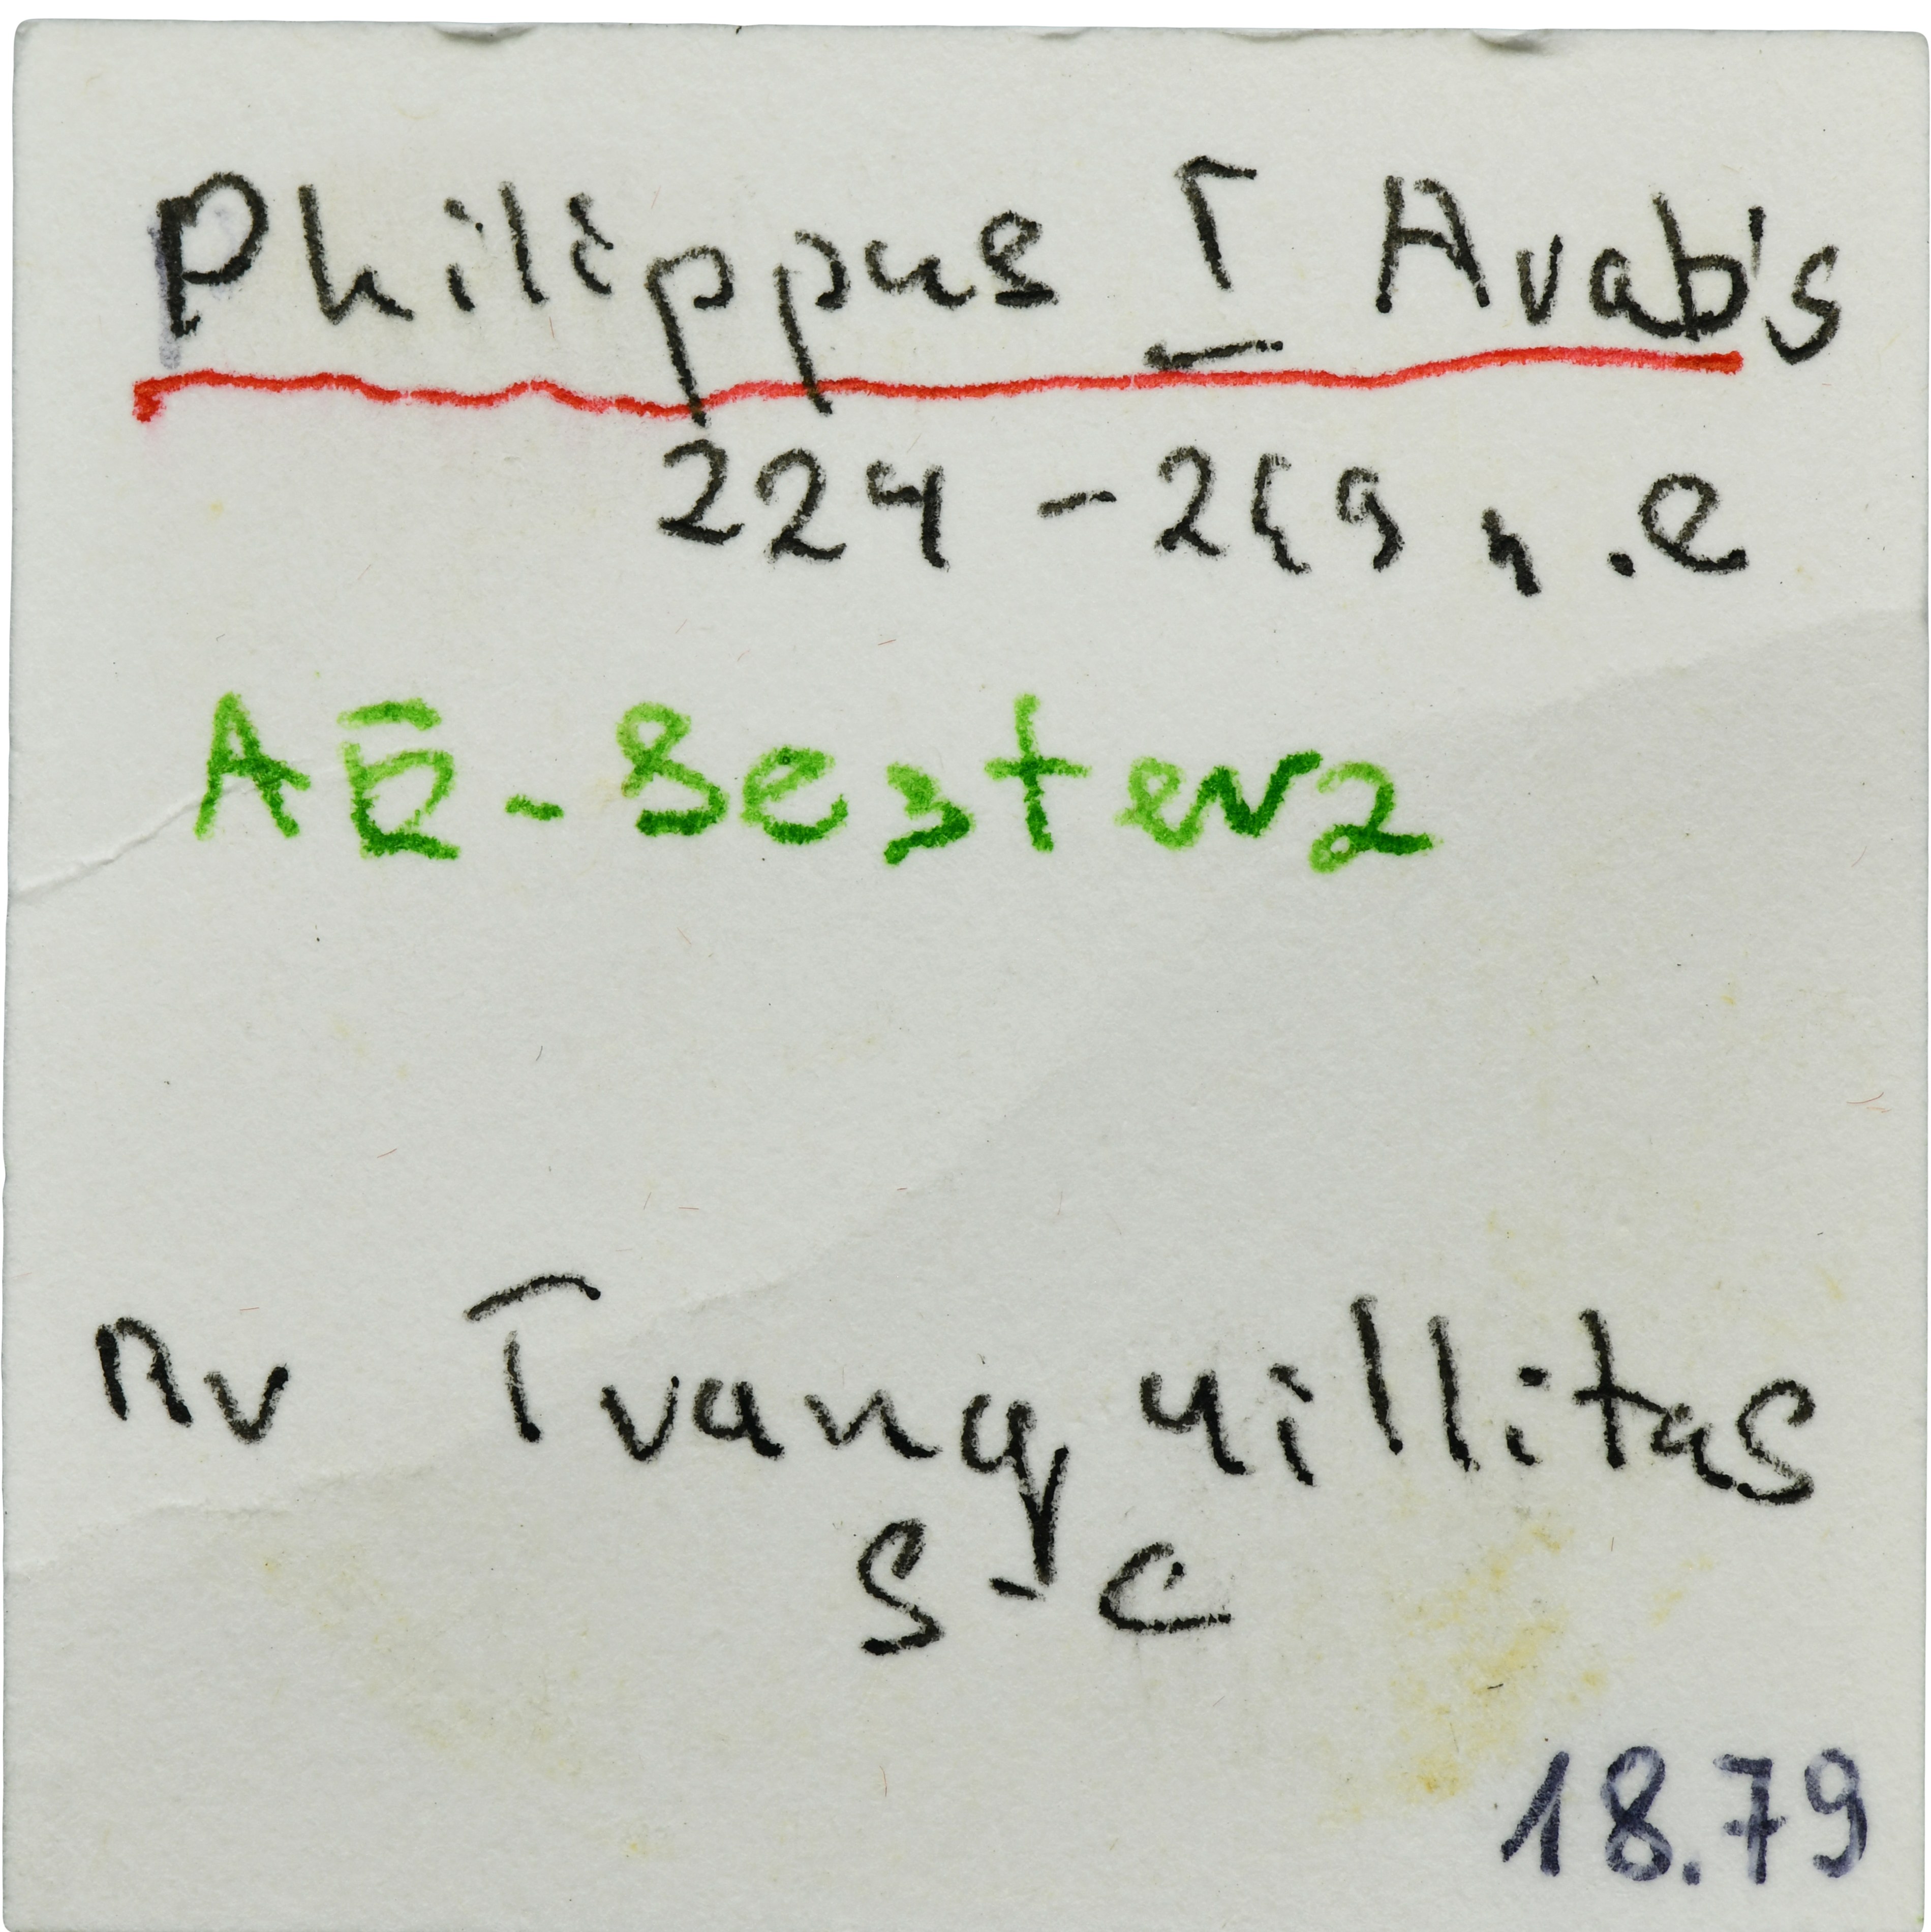 Philippus I Arab's
224 - 249 n.e
AE-Sesterz
Rv Tranquillitas
S-C
18.79